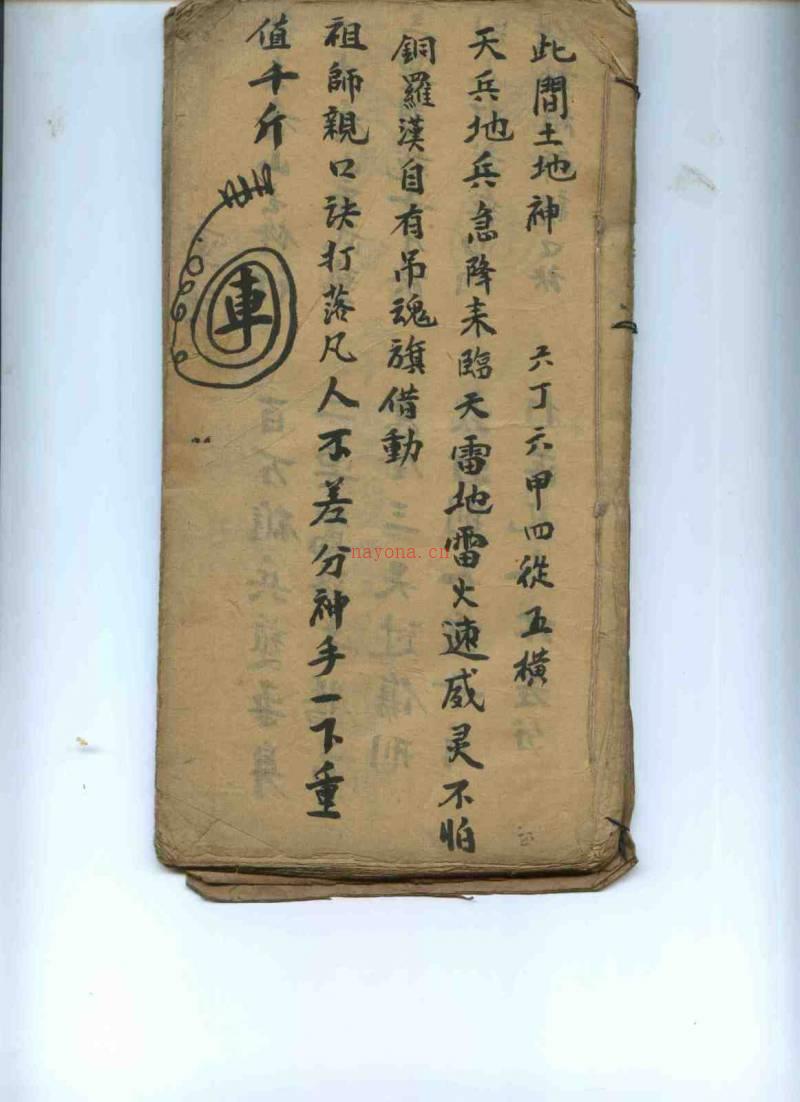 此間土地神 六丁六甲四從五橫
天兵地兵急降来臨天雷地雷火速威灵不怕
銅羅漢自有吊魂旗借動
祖師親口訣打落凡人不差分神手一下重
值千斤
車
nayona.cn